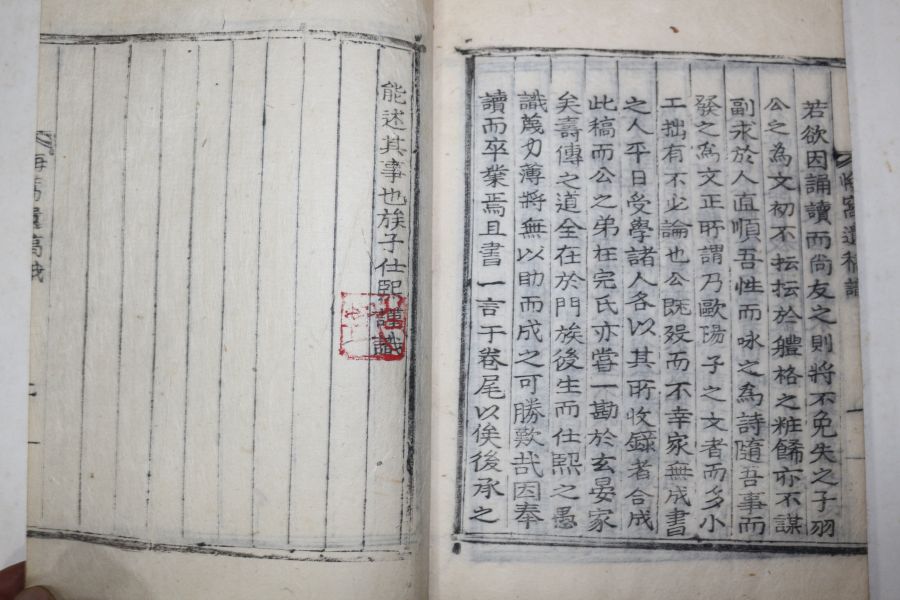 若欲因誦讀而尚友之則將不免失之子羽
公之為文初不抎抎於軆格之粧餙亦不謀
副求於人直順吾性而咏之為詩隨吾事而
發之為文正所謂乃歐陽子之文者而多小
工拙有不必論也公既歿而不幸家無成書
之人平日受學諸人各以其所收錄者合成
此稿而公之弟在完氏亦嘗一勘於玄晏家
矣壽傳之道全在於門族後生而仕熙之愚
識蔑力薄將無以助而成之可勝歎哉因奉
讀而卒業焉且書一言于卷尾以俟後承之
能述其事也族子仕熙謹識